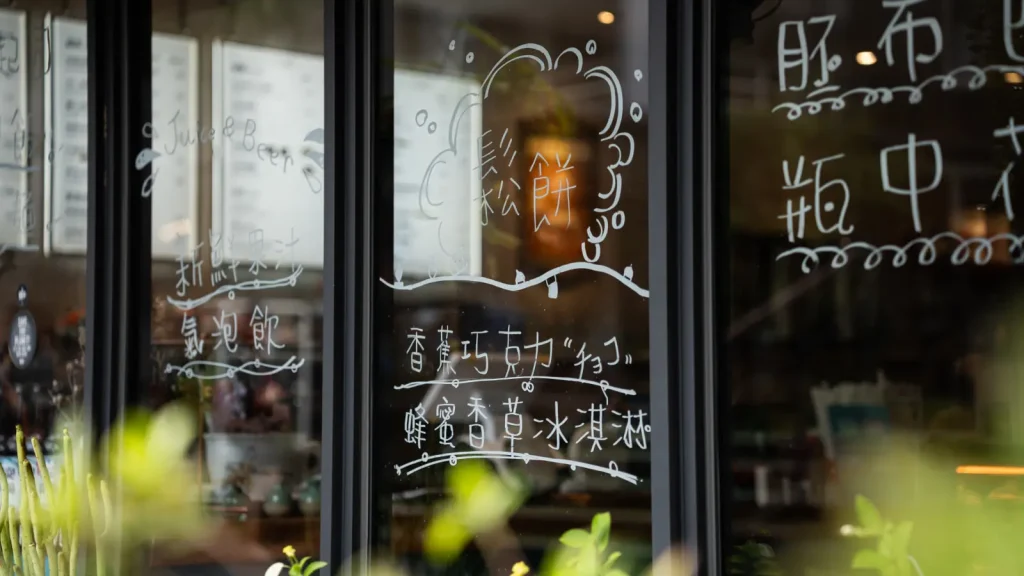 Juice & Beer
新鮮果汁
氣泡飲
鬆餅
香蕉巧克力"チョコ"
蜂蜜香草冰淇淋
胚布
瓶中